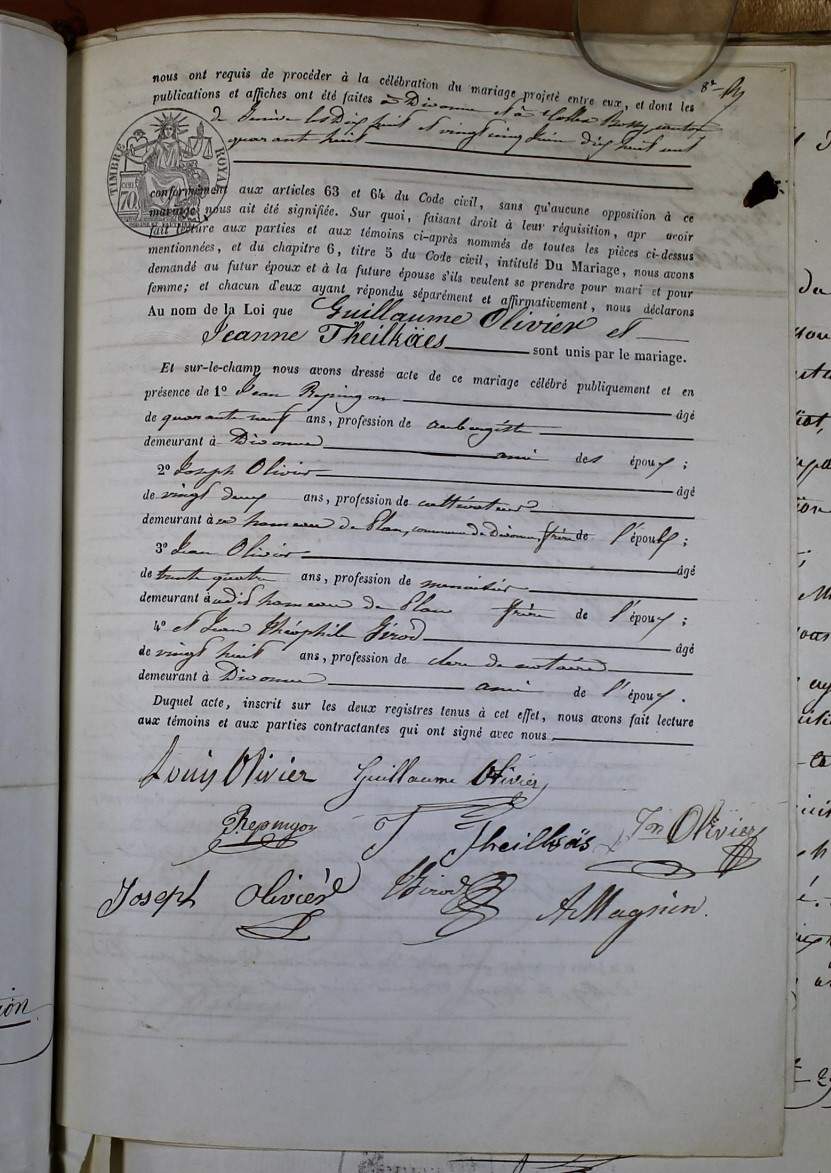 nous ont requis de procéder à la célébration du mariage projeté entre eux, et dont les
8e
publications et affiches ont été faites à Divonne et à Collex Bossy canton
de Genève les Dix huit et vingt cinq juin dix huit cent
quarante huit
TIMBRE ROYAL
70
conformément aux articles 63 et 64 du Code civil, sans qu'aucune opposition à ce
mariage nous ait été signifiée. Sur quoi, faisant droit à leur réquisition, apr avoir
fait lecture aux parties et aux témoins ci-après nommés de toutes les pièces ci-dessus
mentionnées, et du chapitre 6, titre 5 du Code civil, intitulé Du Mariage, nous avons
demandé au futur époux et à la future épouse s'ils veulent se prendre pour mari et pour
femme; et chacun d'eux ayant répondu séparément et affirmativement, nous déclarons
Au nom de la Loi que Guillaume Olivier et
Jeanne Theilkäes sont unis par le mariage.
Et sur-le-champ nous avons dressé acte de ce mariage célébré publiquement et en
présence de 1º Jean Repingon âgé
de quarante neuf ans, profession de aubergiste
demeurant à Divonne ami des époux;
2º Joseph Olivier âgé
de vingt deux ans, profession de cultivateur
demeurant à au hameau de Plan, commune de Divonne, frère de l'époux;
3º Jean Olivier âgé
de trente quatre ans, profession de menuisier
demeurant à udit hameau de Plan frère de l'époux;
4º et Jean Théophile Girod âgé
de vingt huit ans, profession de clerc de notaire
demeurant à Divonne ami de l'époux.
Duquel acte, inscrit sur les deux registres tenus à cet effet, nous avons fait lecture
aux témoins et aux parties contractantes qui ont signé avec nous
Louis Olivier Guillaume Olivier
Repingon J Theilkäs Jn Olivier
Joseph Olivier Girod A Magnin.